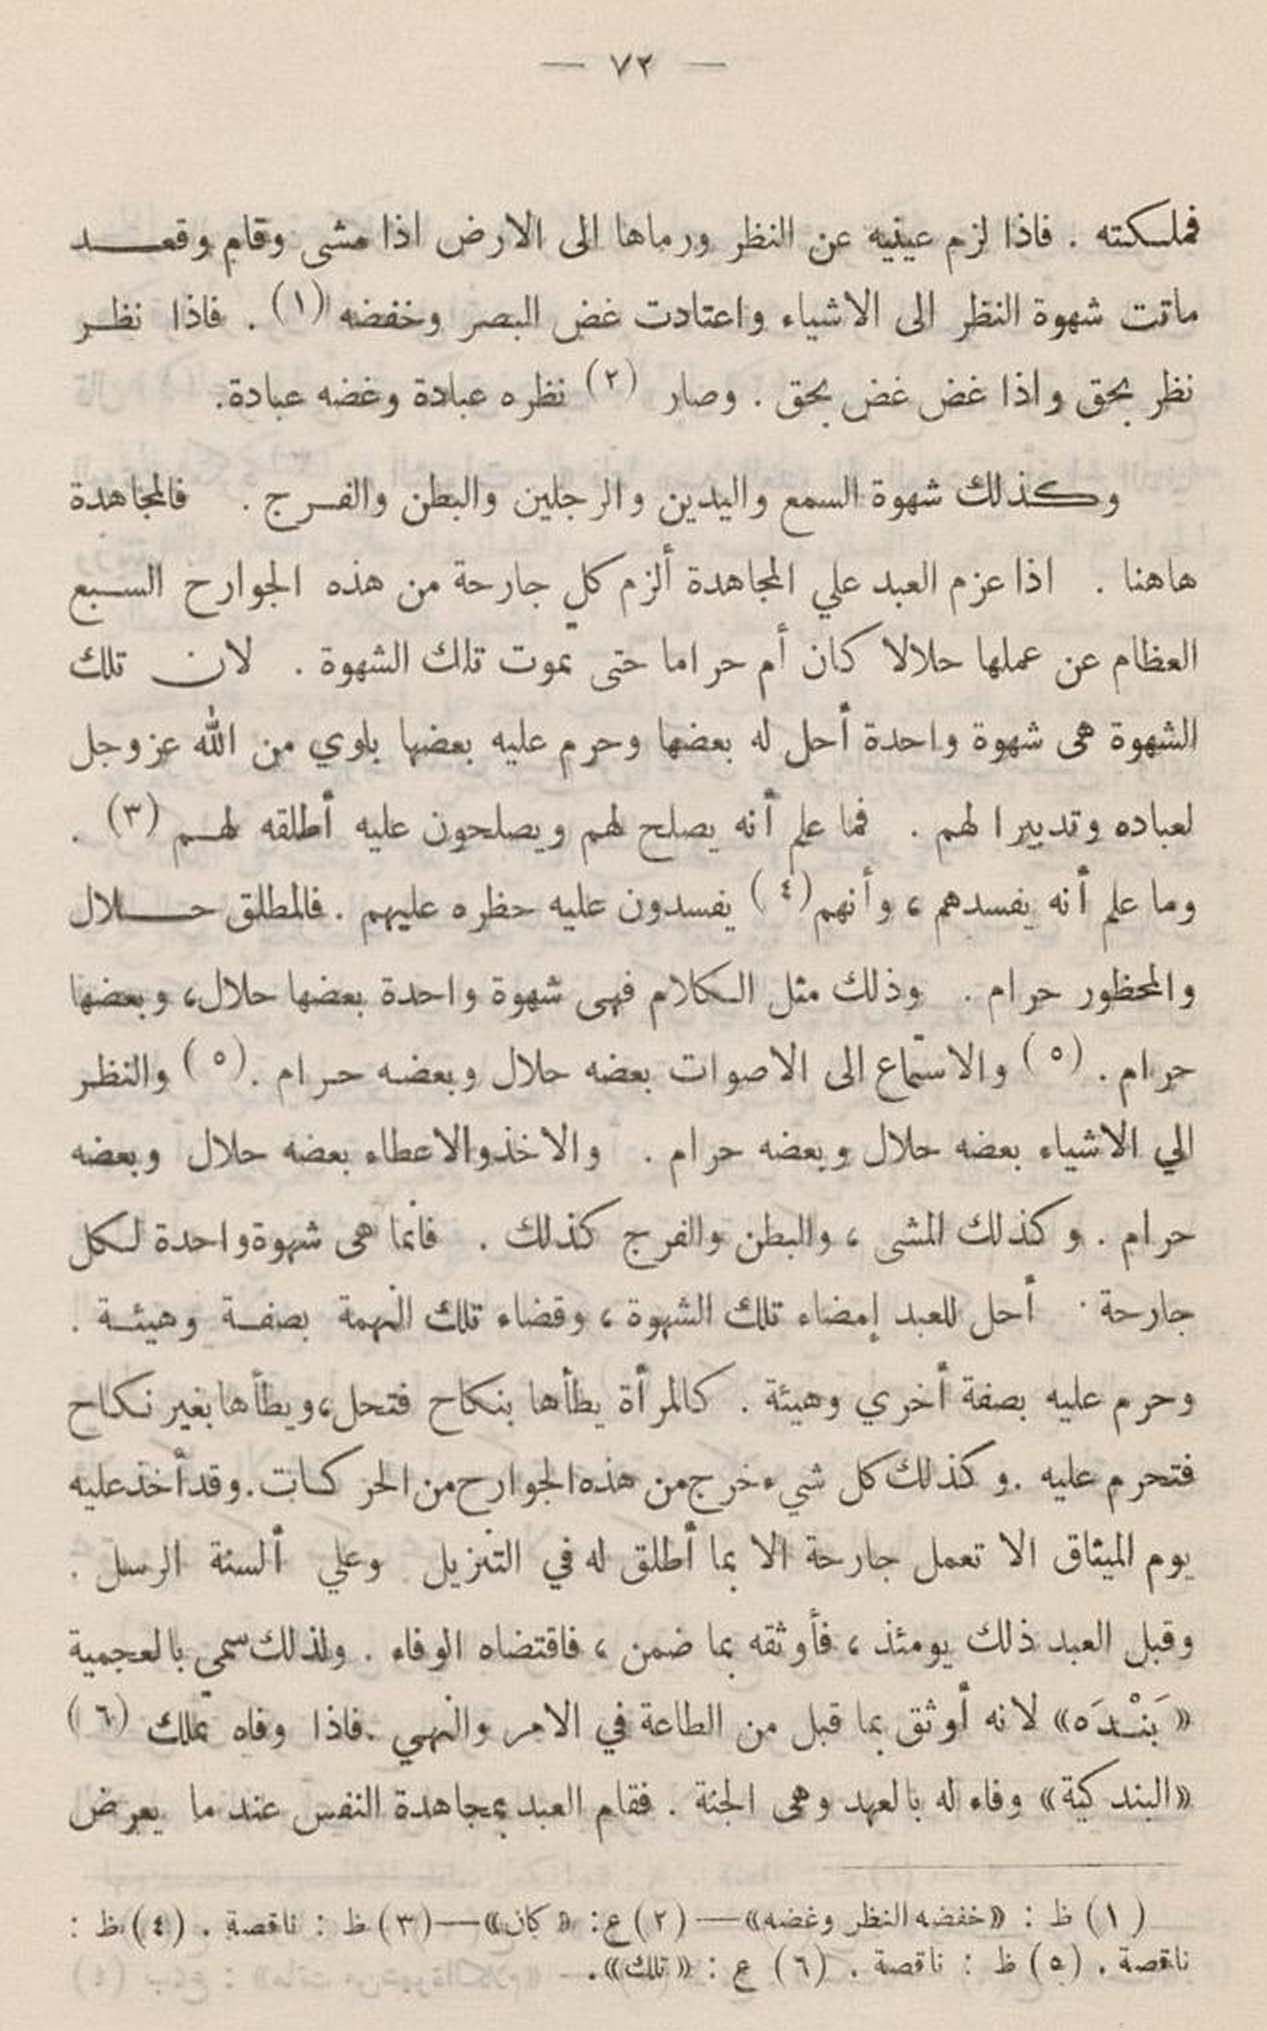 — ٧٢ —
فملكته . فاذا لزم عينيه عن النظر ورماها الى الارض اذا مشى وقام وقعد
ماتت شهوة النظر الى الاشياء واعتادت غض البصر وخفضه (١) . فاذا نظر
نظر بحق واذا غض غض بحق . وصار (٢) نظره عبادة وغضه عبادة.
وكذلك شهوة السمع واليدين والرجلين والبطن والفرج . فالمجاهدة
هاهنا . اذا عزم العبد علي المجاهدة ألزم كل جارحة من هذه الجوارح السبع
العظام عن عملها حلالا كان أم حراما حتى تموت تلك الشهوة . لان تلك
الشهوة هى شهوة واحدة أحل له بعضها وحرم عليه بعضها بلوي من الله عز وجل
لعباده وتدبيرا لهم . فما علم أنه يصلح لهم ويصلحون عليه أطلقه لهم (٣) .
وما علم أنه يفسدهم ، وأنهم (٤) يفسدون عليه حظره عليهم . فالمطلق حلال
والمحظور حرام . وذلك مثل الكلام فهى شهوة واحدة بعضها حلال، وبعضها
حرام . (٥) والاستماع الى الاصوات بعضه حلال وبعضه حرام . (٥) والنظر
الي الاشياء بعضه حلال وبعضه حرام . والاخذ والاعطاء بعضه حلال وبعضه
حرام . وكذلك المشى ، والبطن والفرج كذلك . فانما هى شهوة واحدة لكل
جارحة . أحل للعبد إمضاء تلك الشهوة ، وقضاء تلك النهمة بصفة وهيئة .
وحرم عليه بصفة أخري وهيئة . كالمرأة يطأها بنكاح فتحل، ويطأها بغير نكاح
فتحرم عليه . وكذلك كل شيء خرج من هذه الجوارح من الحركات . وقد أخذ عليه
يوم الميثاق الا تعمل جارحة الا بما أطلق له في التنزيل وعلي ألسنة الرسل .
وقبل العبد ذلك يومئذ ، فأوثقه بما ضمن ، فاقتضاه الوفاء . ولذلك سمي بالعجمية
« بَنْدَه» لانه أوثق بما قبل من الطاعة في الامر والنهي . فاذا وفاه تملك (٦)
«البندكية» وفاء له بالعهد وهى الجنة . فقام العبد بمجاهدة النفس عند ما يعرض
(١) ظ : «خفضه النظر وغضه» — (٢) ع : « كان» — (٣) ظ : ناقصة . (٤) ظ :
ناقصة . (٥) ظ : ناقصة . (٦) ع : « تلك» .